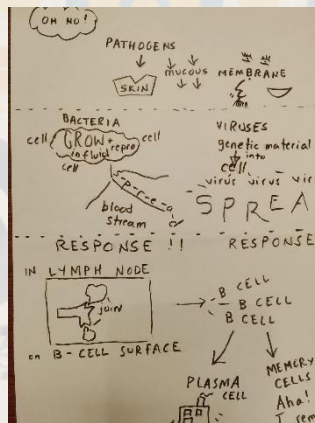 OH NO!
PATHOGENS
SKIN
mucous MEMBRANE
BACTERIA
cell GROW + repro cell
in fluid
cell
blood
stream
Spread
VIRUSES
genetic material
into
cell
virus virus vir
SPREA
RESPONSE !! RESPONSE
IN LYMPH NODE
JOIN
on B-CELL SURFACE
B CELL
B CELL
B CELL
PLASMA
CELL
MEMORY
CELLS
Aha!
I rem